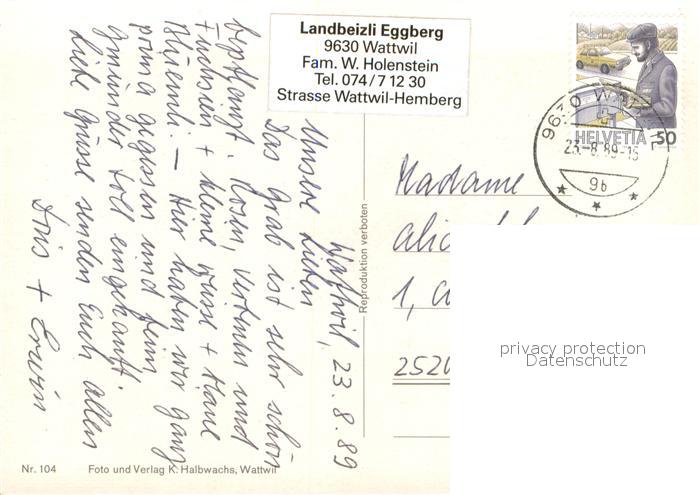 Landbeizli Eggberg
9630 Wattwil
Fam. W. Holenstein
Tel. 074/7 12 30
Strasse Wattwil-Hemberg
HELVETIA 50
9630 W
23.-8.89-15
9b
Wattwil, 23.8.89
Unsere Lieben
Das Grab ist sehr schön
bepflanzt. Rosen, Verbenen und
Fuchsien + kleine weisse + blaue
Blüemli. – Hier haben wir ganz
prima gegessen und beim
Gmünder toll eingekauft.
Liebe Grüsse senden Euch allen
Doris + Erwin
Madame
1,
252
Reproduktion verboten
Nr. 104 Foto und Verlag K. Halbwachs, Wattwil
privacy protection
Datenschutz